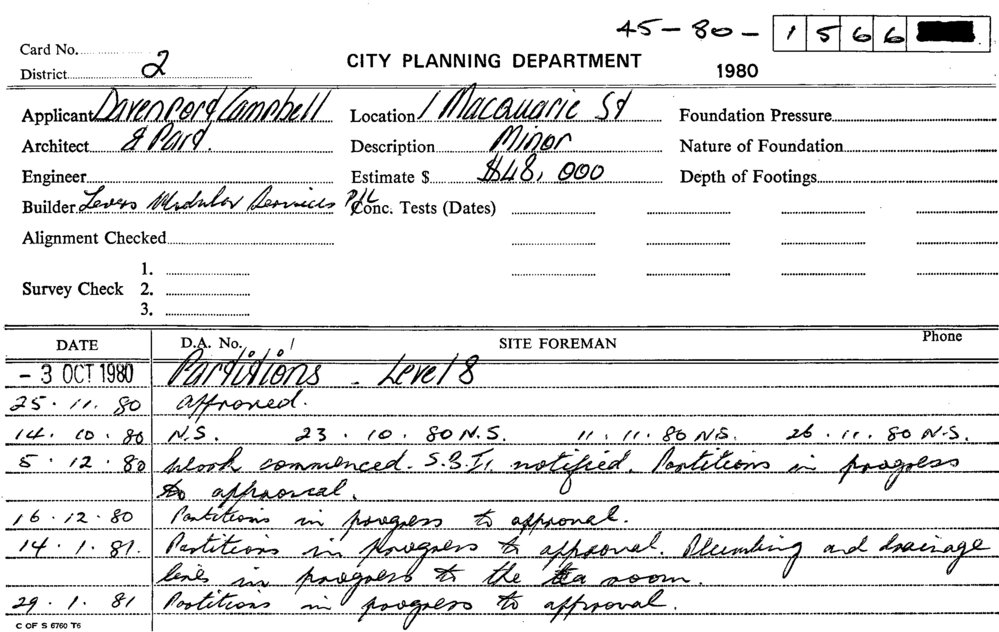 45-80- 1566
Card No.
District 2
CITY PLANNING DEPARTMENT
1980
Applicant Davenport Campbell
Location 1 Macquarie St
Foundation Pressure
Architect & Part.
Description Minor
Nature of Foundation
Engineer
Estimate $ $48,000
Depth of Footings
Builder Levers Modular Services P/L
Conc. Tests (Dates)
Alignment Checked
Survey Check
1.
2.
3.
DATE
D.A. No.
SITE FOREMAN
Phone
- 3 OCT 1980 Partitions - Level 8
25. 11. 80 approved.
14. 10. 80 N.S. 23. 10. 80 N.S. 11. 11. 80 N.S. 26. 11. 80 N.S.
5. 12. 80 Work commenced. notified. Partitions in progress
to approval.
16. 12. 80 Partitions in progress to approval.
14. 1. 81. Partitions in progress to approval. Plumbing and drainage
lines in progress to the tea room.
29. 1. 81 Partitions in progress to approval.
C OF S 6760 T6